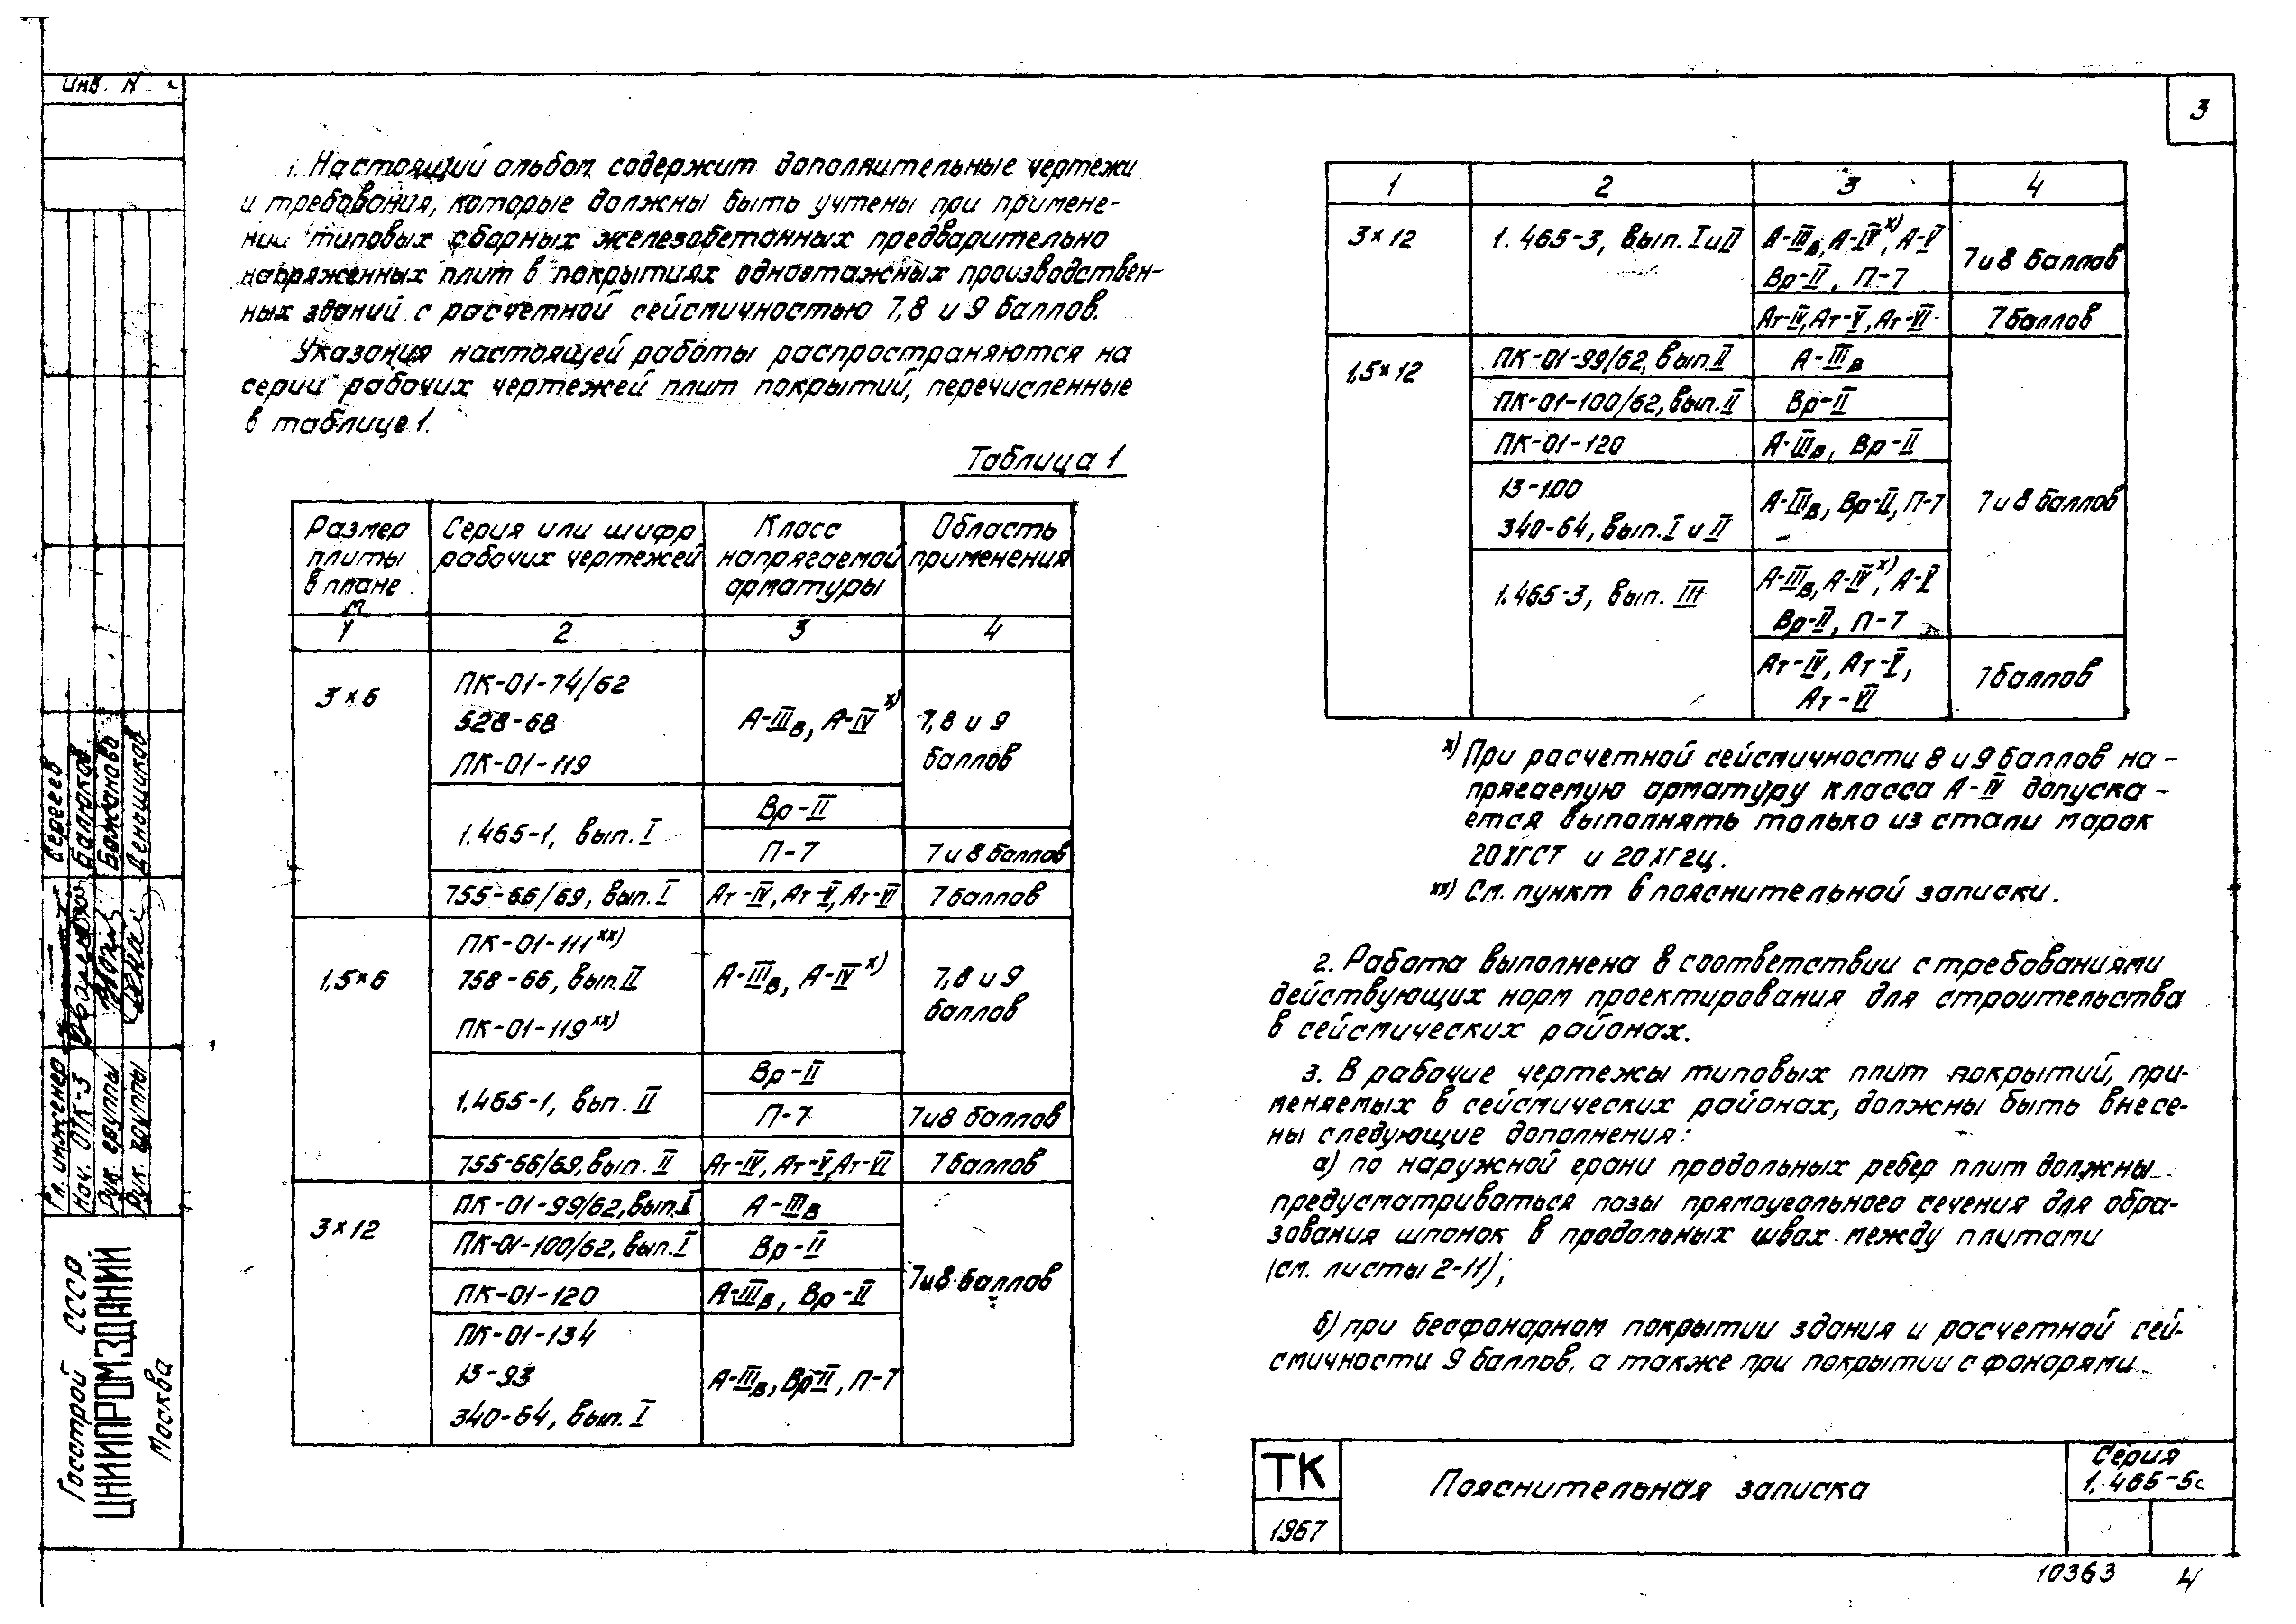 Инв. N
3
1. Настоящий альбом содержит дополнительные чертежи
и требования, которые должны быть учтены при примене-
нии типовых сборных железобетонных предварительно
напряженных плит в покрытиях одноэтажных производствен-
ных зданий с расчетной сейсмичностью 7,8 и 9 баллов.
Указания настоящей работы распространяются на
серии рабочих чертежей плит покрытий, перечисленные
в таблице 1.
Таблица 1
Размер плиты в плане м | Серия или шифр рабочих чертежей | Класс напрягаемой арматуры | Область применения
1 2 3 4
3×6
ПК-01-74/62
528-68
ПК-01-119
А-IIIв, А-IV х)
7,8 и 9
баллов
1.465-1, вып. I
Вр-II
П-7 7 и 8 баллов
755-66/69, вып. I Ат-IV, Ат-V, Ат-VI 7 баллов
1,5×6
ПК-01-111 хх)
758-66, вып. II
ПК-01-119 хх)
А-IIIв, А-IV х)
7,8 и 9
баллов
1.465-1, вып. II
Вр-II
П-7 7и8 баллов
755-66/69, вып. II Ат-IV, Ат-V, Ат-VI 7 баллов
3×12
ПК-01-99/62, вып. I А-IIIв
ПК-01-100/62, вып. I Вр-II
ПК-01-120 А-IIIв, Вр-II
7и8 баллов
ПК-01-134
13-93
340-64, вып. I
А-IIIв, Вр-II, П-7
1 2 3 4
3×12 1.465-3, вып. I и II А-IIIв, А-IV х), А-V
Вр-II, П-7
7и8 баллов
Ат-IV, Ат-V, Ат-VI 7 баллов
1,5×12
ПК-01-99/62, вып. II А-IIIв
ПК-01-100/62, вып. II Вр-II
ПК-01-120 А-IIIв, Вр-II
13-100
340-64, вып. I и II
А-IIIв, Вр-II, П-7
7 и 8 баллов
1.465-3, вып. III
А-IIIв, А-IV х), А-V
Вр-II, П-7
Ат-IV, Ат-V,
Ат-VI
7баллов
х) При расчетной сейсмичности 8 и 9 баллов на-
прягаемую арматуру класса А-IV допуска-
ется выполнять только из стали марок
20ХГСТ и 20ХГ2Ц.
хх) См. пункт 6 пояснительной записки.
2. Работа выполнена в соответствии с требованиями
действующих норм проектирования для строительства
в сейсмических районах.
3. В рабочие чертежы типовых плит покрытий, при-
меняемых в сейсмических районах, должны быть внесе-
ны следующие дополнения:
а) по наружной грани продольных ребер плит должны
предусматриваться пазы прямоугольного сечения для обра-
зования шпонок в продольных швах между плитами
(см. листы 2-11);
б) при бесфонарном покрытии здания и расчетной сей-
смичности 9 баллов, а также при покрытии с фонарями
Гл. инженер Сергеев
Нач. ОТК-3 Балюков
Рук. группы Бажанова
Рук. группы Деньщиков
Госстрой СССР
ЦНИИПРОМЗДАНИЙ
Москва
ТК
1967
Пояснительная записка
Серия
1.465-5с
10363 4